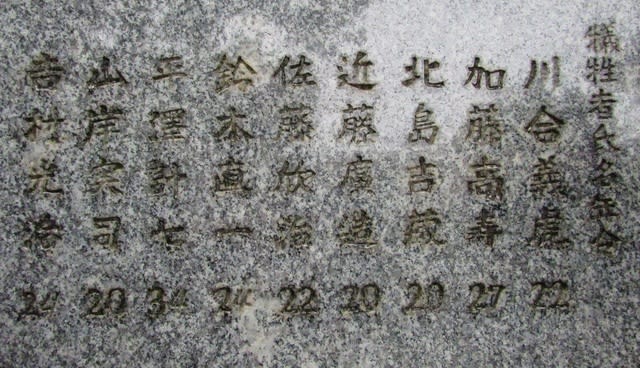 犠牲者氏名年令
川合義虎 22
加藤高寿 27
北島吉蔵 20
近藤廣造 20
佐藤欣治 22
鈴木直一 24
平澤計七 34
山岸実司 20
吉村光治 24